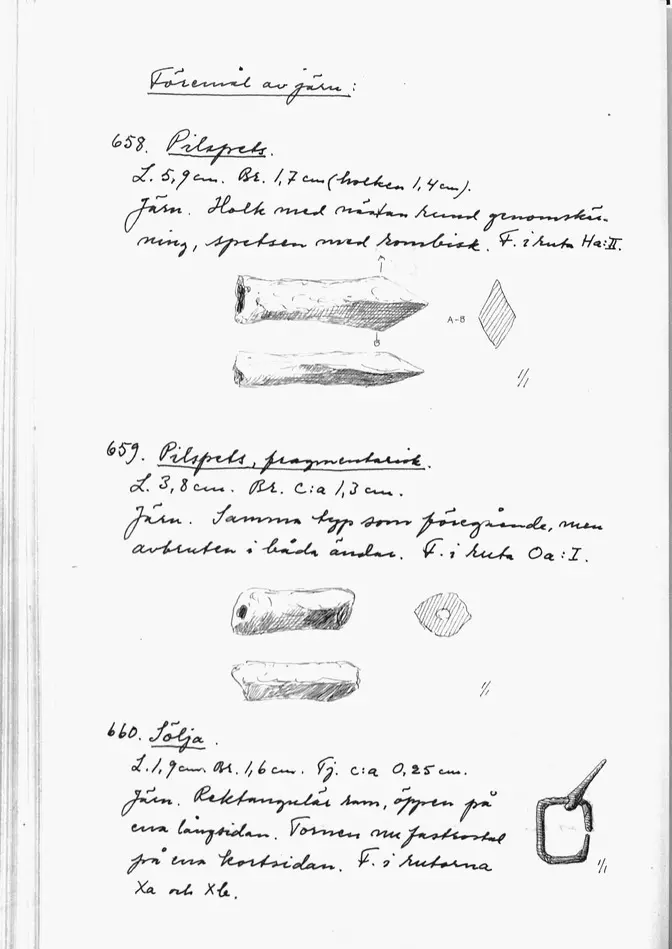 Föremål av järn:
658. Pilspets.
L. 5,9 cm. Br. 1,7 cm (holken 1,4 cm).
Järn. Holk med nästan rund genomskär-
ning, spetsen med rombisk. F. i ruta Ha:II.
A-B
B
1/1
659. Pilspets, fragmentarisk.
L. 3,8 cm. Br. C:a 1,3 cm.
Järn. Samma typ som föregående, men
avbruten i båda ändar. F. i ruta Oa:I.
1/1
660. Sölja.
L. 1,9 cm. Br. 1,6 cm. Tj. c:a 0,25 cm.
Järn. Rektangulär ram, öppen på
ena långsidan. Tornen nu fastrostad
på ena kortsidan. F. i rutorna
Xa och Xb.
1/1